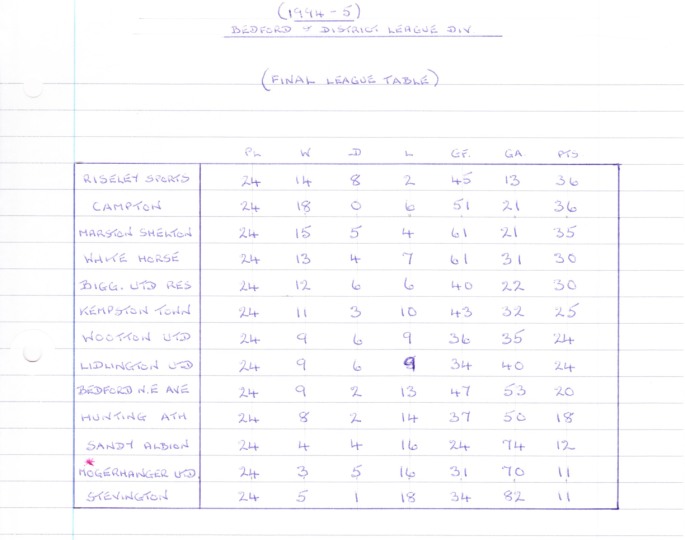 (1994-5)
BEDFORD & DISTRICT LEAGUE DIV
(FINAL LEAGUE TABLE)
PL W D L GF. GA. PTS
RISELEY SPORTS 24 14 8 2 45 13 36
CAMPTON 24 18 0 6 51 21 36
MARSTON SHELTON 24 15 5 4 61 21 35
WHITE HORSE 24 13 4 7 61 31 30
BIGG. UTD RES 24 12 6 6 40 22 30
KEMPSTON TOWN 24 11 3 10 43 32 25
WOOTTON UTD 24 9 6 9 36 35 24
LIDLINGTON UTD 24 9 6 9 34 40 24
BEDFORD N.E AVE 24 9 2 13 47 53 20
HUNTING ATH 24 8 2 14 37 50 18
SANDY ALBION 24 4 4 16 24 74 12
* MOGERHANGER UTD. 24 3 5 16 31 70 11
STEVINGTON 24 5 1 18 34 82 11